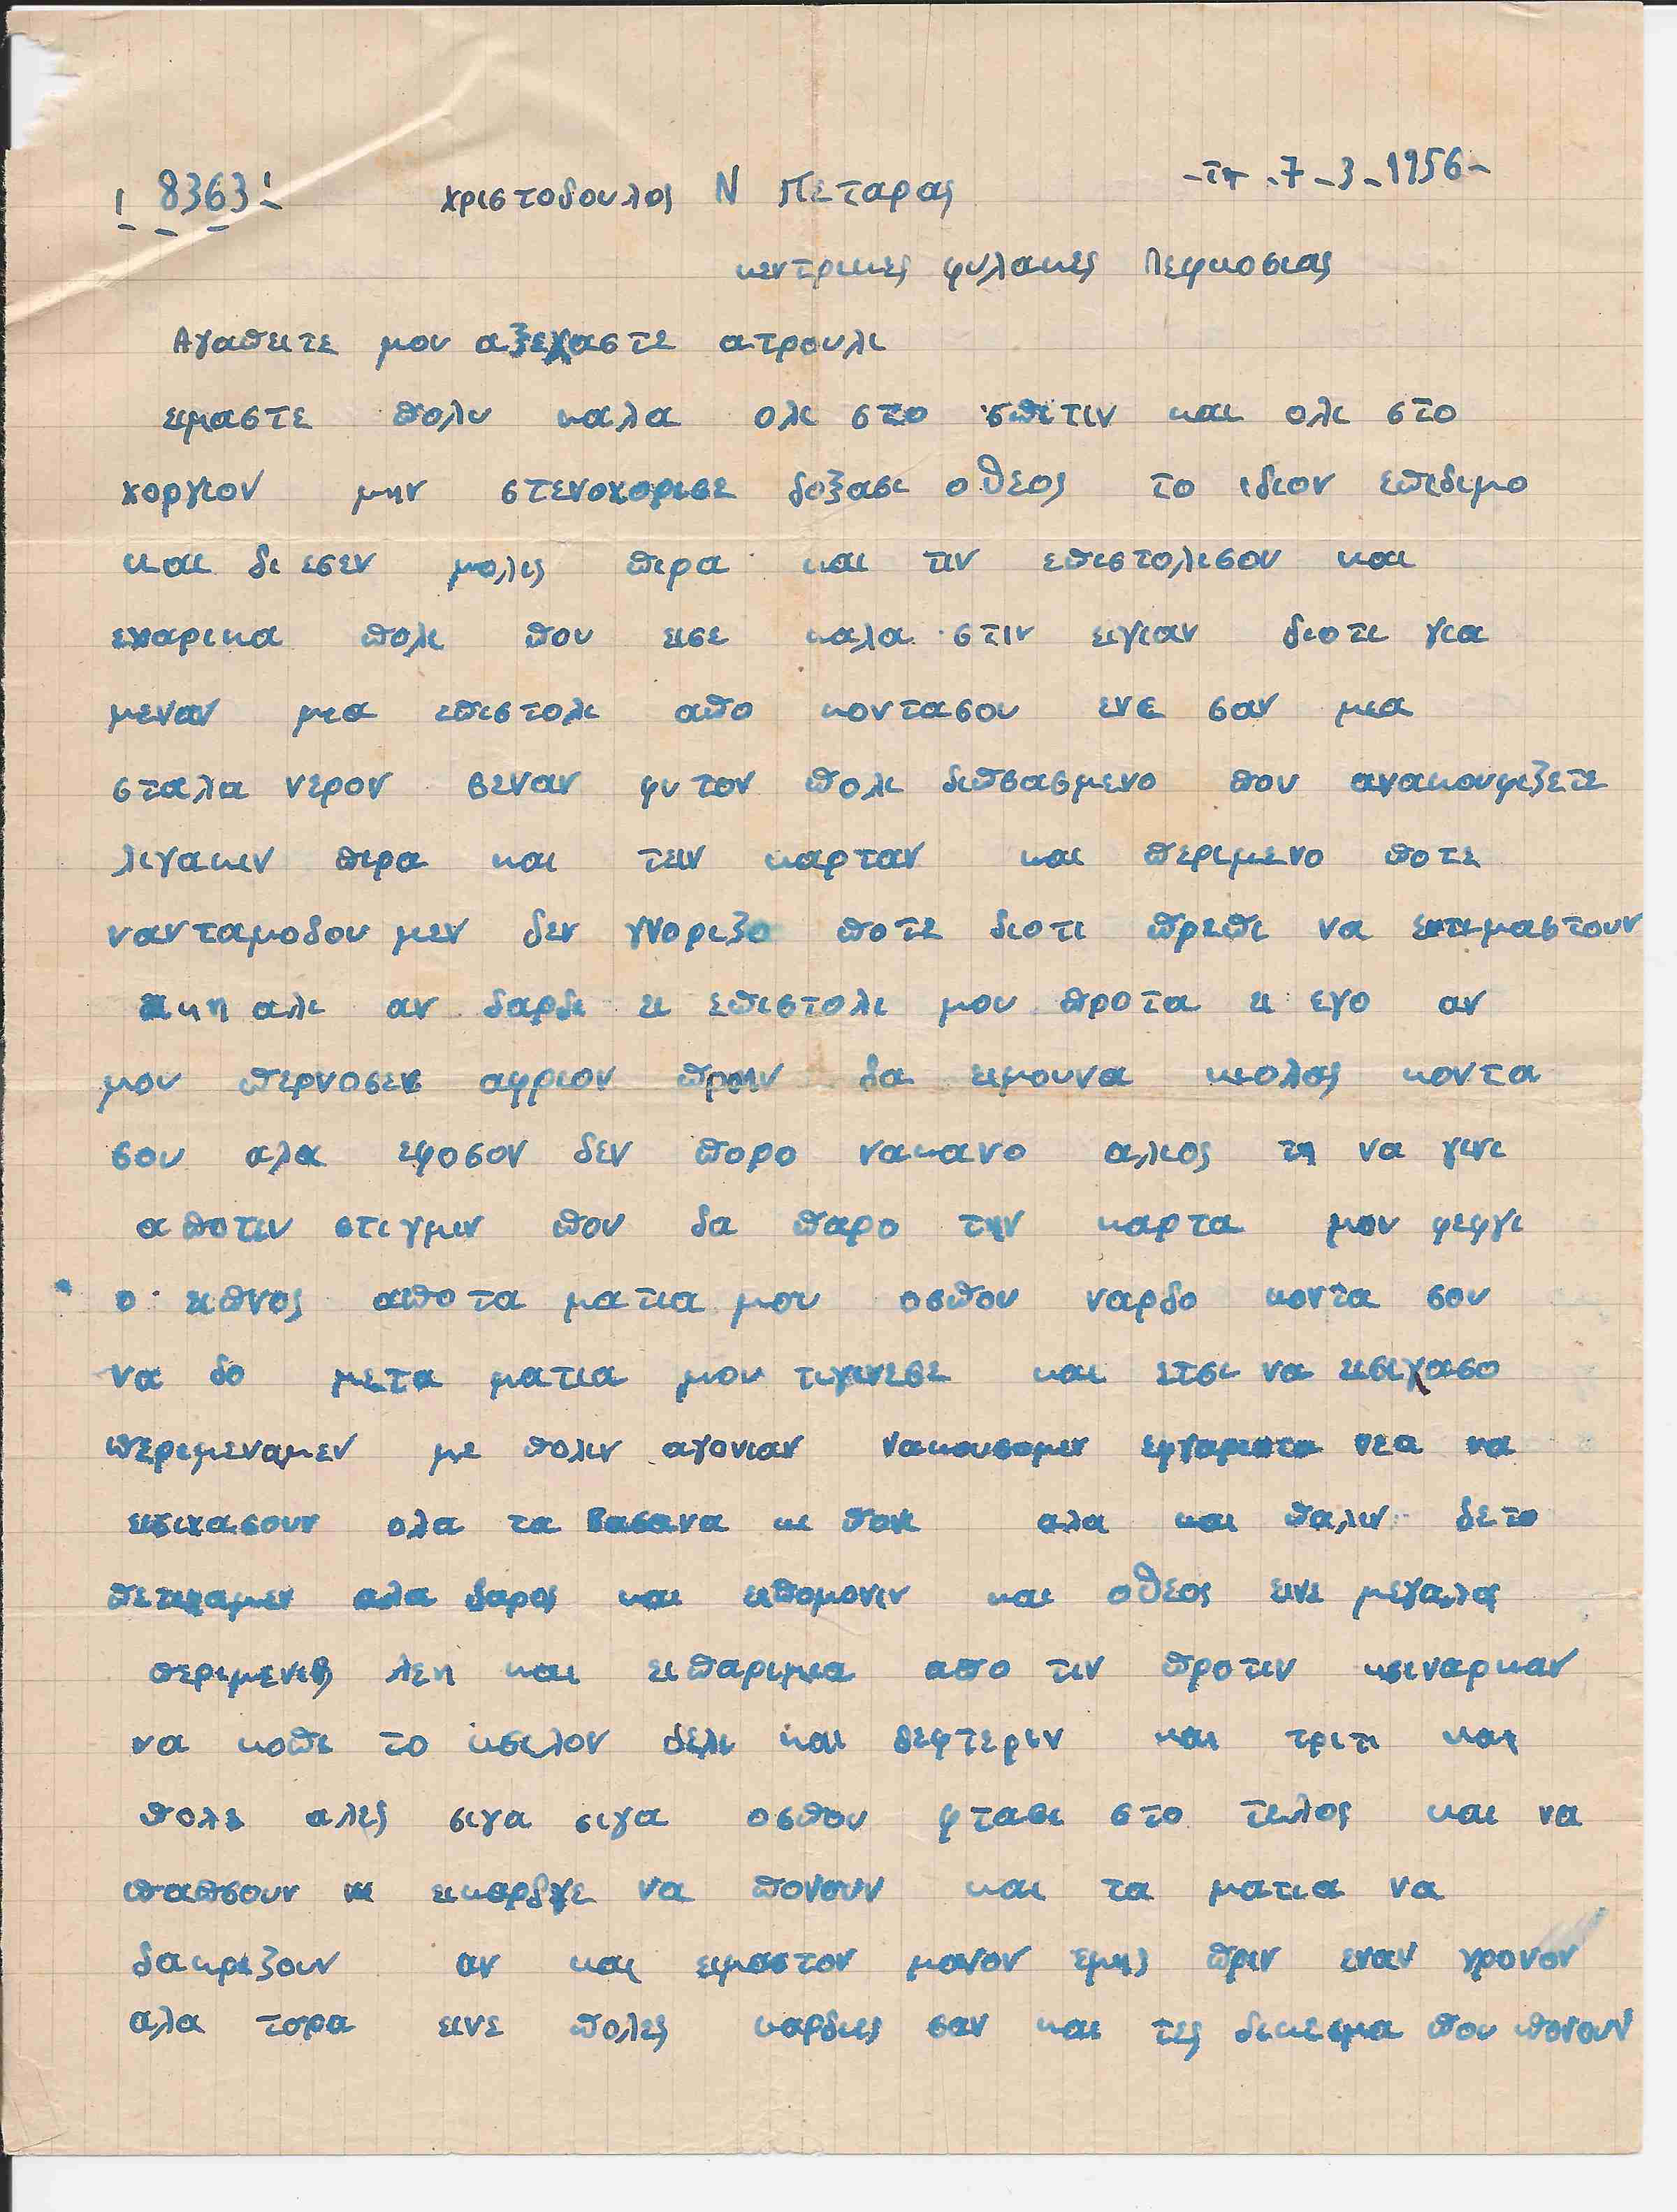 8363 χριστοδουλος Ν Πεταρας -τη-7-3-1956-
κεντρικες φυλακες Λεφκοσιας
Αγαπειτε μου αξεχαστε ατρουλι
ειμαστε πολυ καλα ολι στο σπιτιν και ολι στο
χοργιον μην στενοχορισε δοξασι οθεος το ιδιον επιδιμο
και δι εσεν μολις πιρα και τιν επιστολισου και
εχαρικα πολι που εισε καλα στιν ειγιαν διοτι για
μεναν μια επιστολι απο κοντασου ενε σαν μια
σταλα νερον σεναν φυτον πολι διπσασμενο που ανακουφιζετε
λιγακιν πιρα και τειν καρταν και περιμενο ποτε
νανταμοδου μεν δεν γνοριζο ποτε διοτι πρεπι να ετιμαστουν
κη αλι αν δαρδι ει επιστολι μου προτα ει εγο αν
μου περνοσεν αφριον πρσιν δα ειμουνα κιολας κοντα
σου αλα εφοσον δεν πορο νακανο αλιος τη να γινι
α ποτιν στιγμιν που δα παρο την καρτα μου φεφγι
ο ειπνος απο τα ματια μου οσπου ναρδο κοντα σου
να δο μετα ματια μου τιγινεσε και ετσι να εισιχασο
περιμεναμεν με πολιν αγονιαν νακουσομεν εφχαριστα νεα να
εισιχασουν ολα τα βασανα κι πονι αλα και παλιν δετο
πετιχαμεν αλα δαρος και ειπομονιν και οθεος εινε μεγαλος
περιμενις λεη και ειπαριμια απο τιν προτιν κσιναρκαν
να κοπι το κσιλον δελι και δεφτεριν και τριτι και
πολε αλες σιγα σιγα οσπου φτασι στο τελος και να
παπσουν κι εικαρδγε να πονουν και τα ματια να
δακριζουν αν και ειμαστον μονον εμις πριν εναν χρονον
αλα τορα εινε πολες καρδιες σαν και τες δικεσμα που πονουν